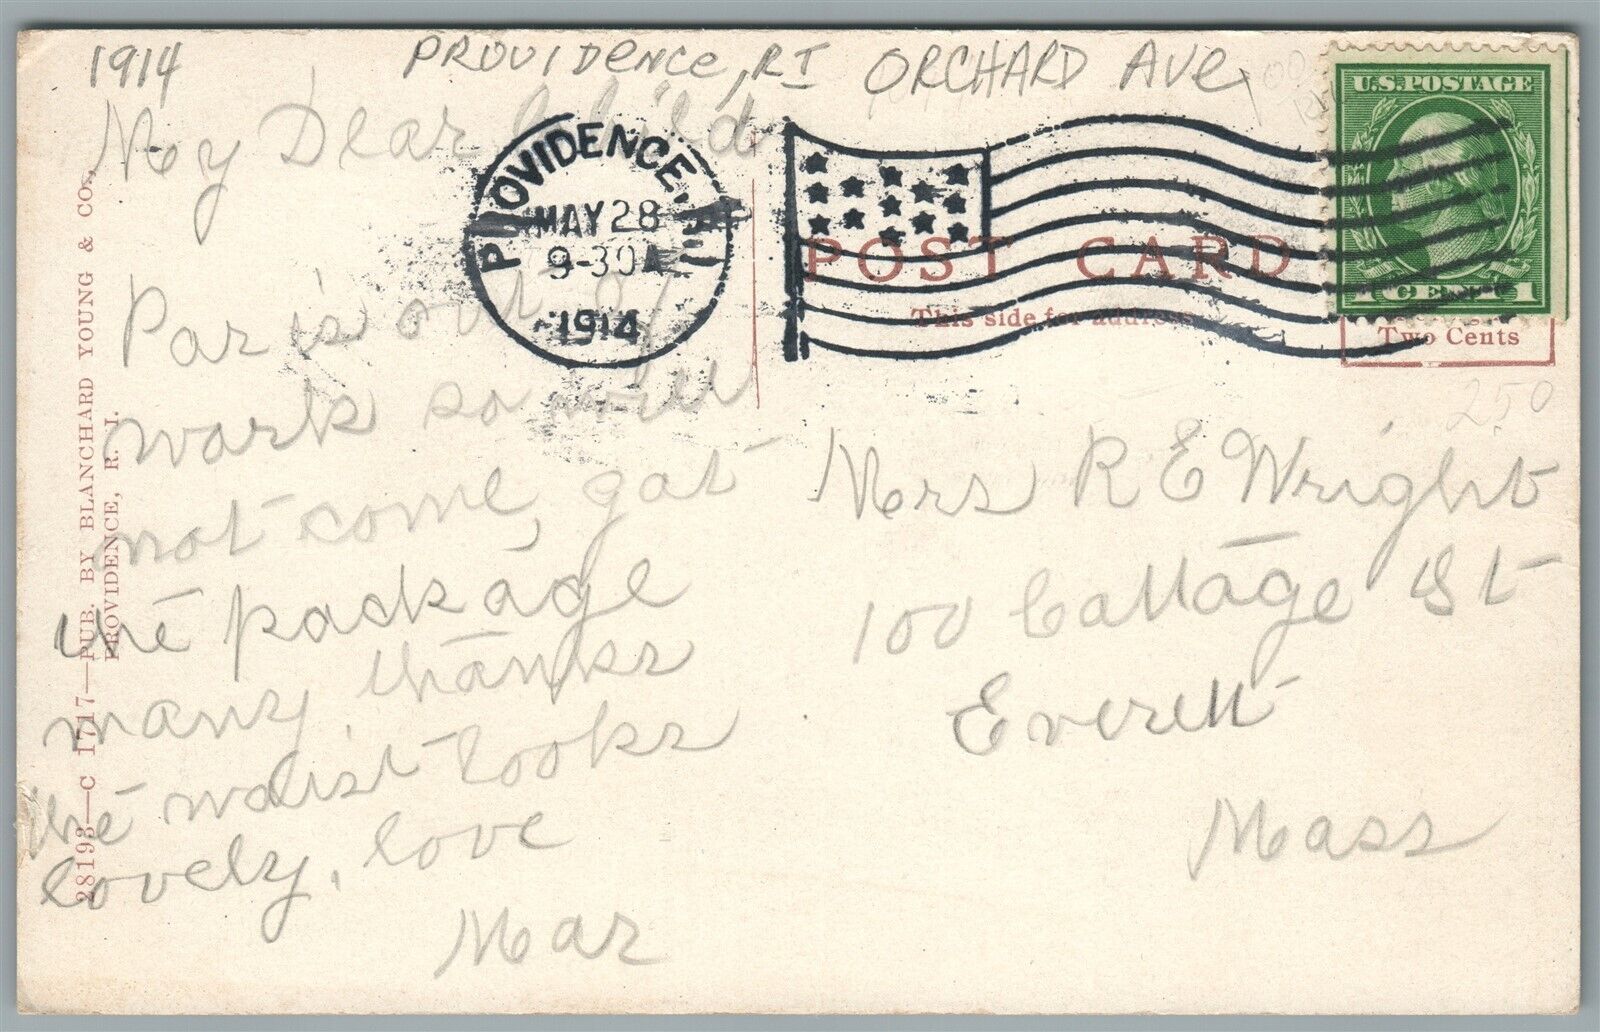 1914
PROVIDENCE, RI ORCHARD AVE
My Dear Child
Par is out of
work so will
not come, got
the package
many thanks
the waist looks
lovely, love
Mar
PROVIDENCE, R.I.
MAY 28
9-30 A
1914
U.S. POSTAGE
1 CENT 1
POST CARD
This side for address
Two Cents
250
Mrs R E Wright
100 Cottage St
Everett
Mass
28193—C 1717—PUB. BY BLANCHARD YOUNG & CO.,
PROVIDENCE, R. I.